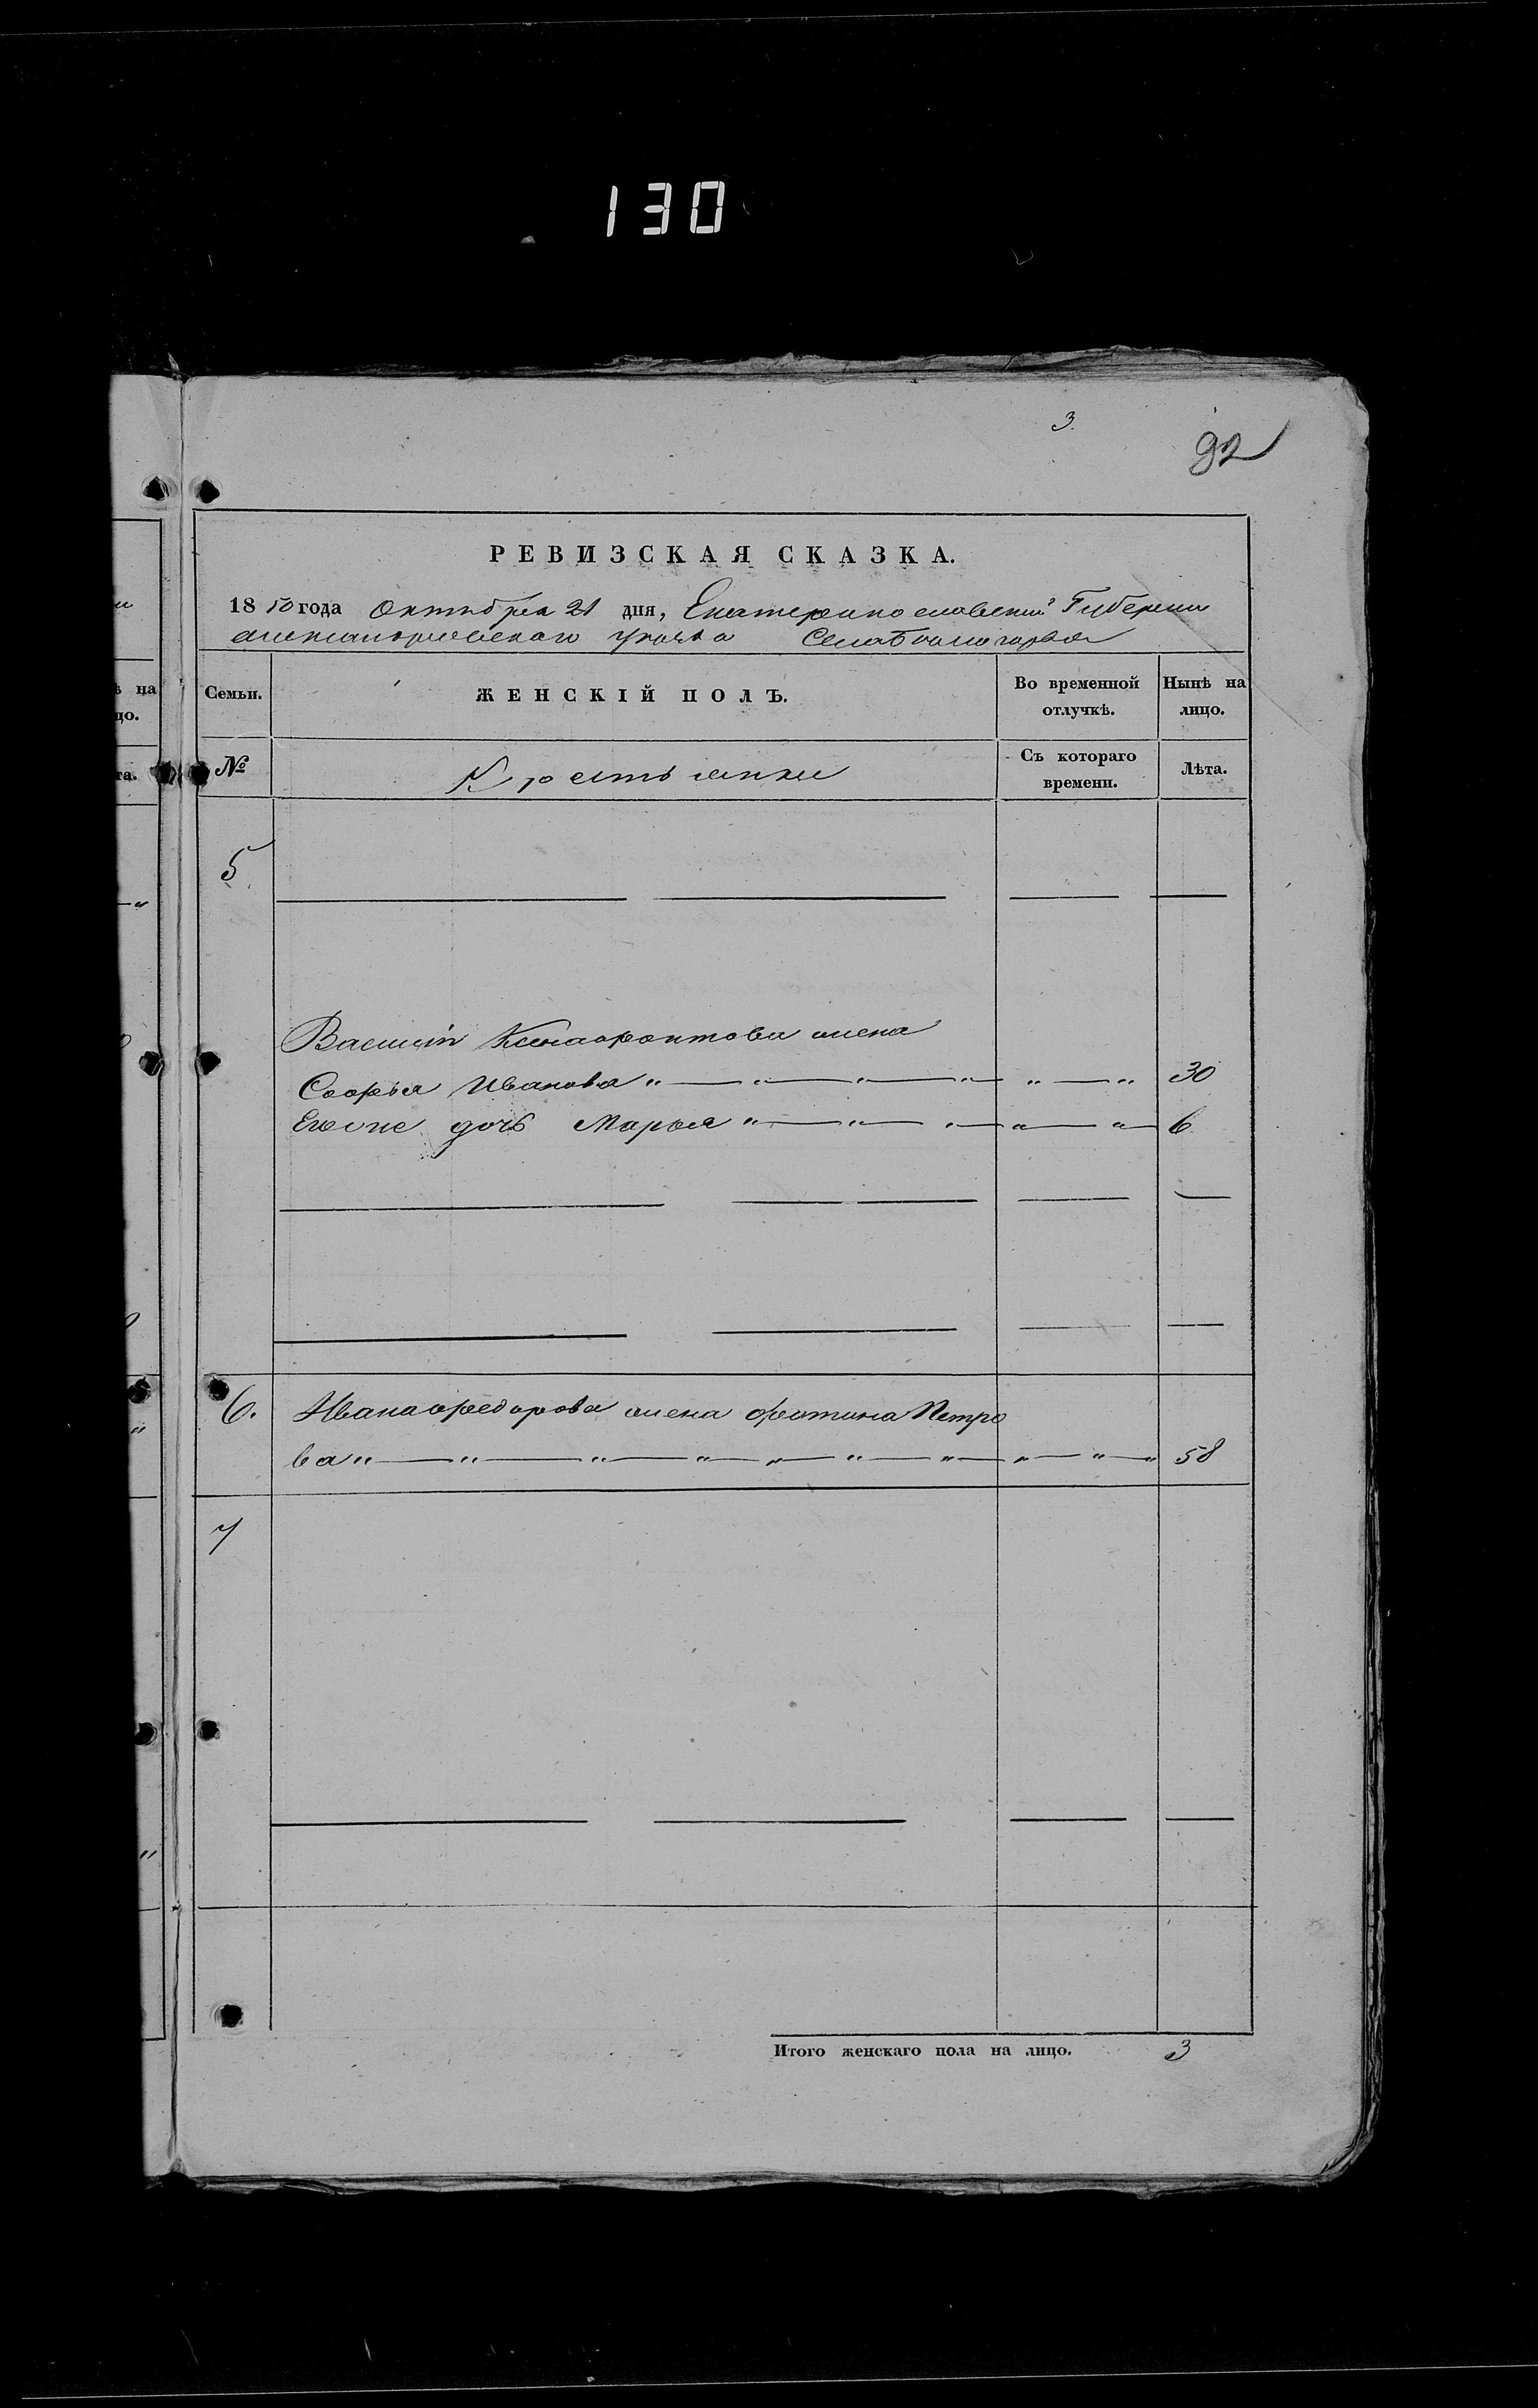 130
3.
92
РЕВИЗСКАЯ СКАЗКА.
1850 года Октября 21 дня, Екатеринославской Губернии
александровского уезда
Семьи. ЖЕНСКІЙ ПОЛЪ. Во временной отлучкѣ. Нынѣ на лицо.
№ Крестьянки Съ котораго времени. Лѣта.
5
Василія жена
Софья Иванова " " " " " " 30
Егоже дочь Марья " " " " " 6
6. Ивана Федорова жена Фотина Петро
ва " " " " " " " " " " 58
7
Итого женскаго пола на лицо. 3